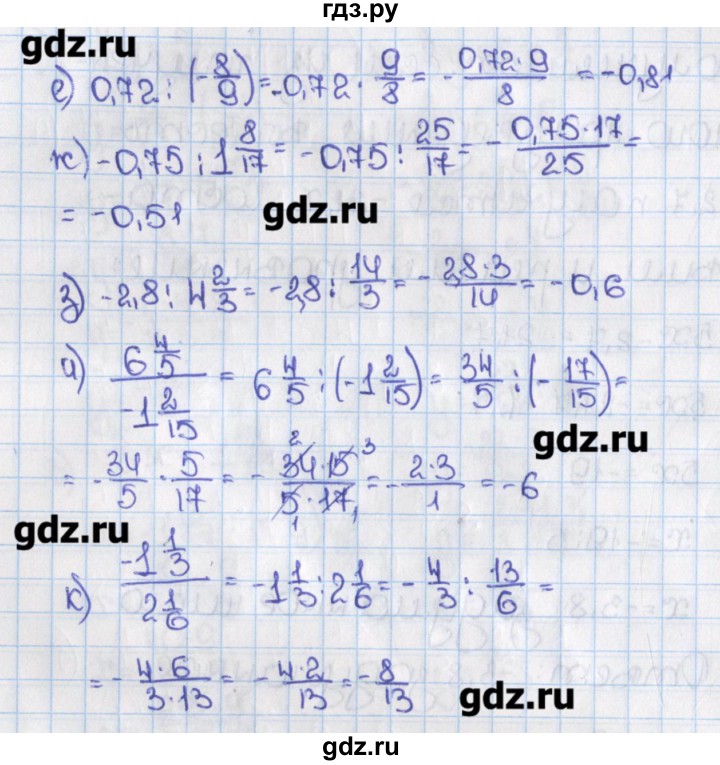 гдз.ру
gdz.ru
е) 0,72 : (-8/9) = -0,72 · 9/8 = - 0,72·9/8 = -0,81
ж) -0,75 : 1 8/17 = -0,75 : 25/17 = - 0,75·17/25 =
= -0,51
gdz.ru
з) -2,8 : 4 2/3 = -2,8 : 14/3 = - 2,8·3/14 = -0,6
и) 6 4/5 / -1 2/15 = 6 4/5 : (-1 2/15) = 34/5 : (-17/15) =
gdz.ru
= - 34/5 · 5/17 = - 34·15/5·17 = - 2·3/1 = -6
gdz.ru
к) -1 1/3 / 2 1/6 = -1 1/3 : 2 1/6 = - 4/3 : 13/6 =
= - 4·6/3·13 = - 4·2/13 = - 8/13
gdz.ru
gdz.ru